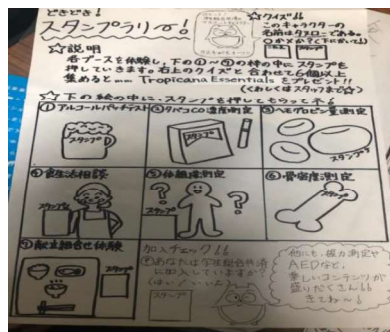 どきどき!
スタンプラリー!
☆クイズ
このキャラクターの
名前はタヌローである。
スタンプ
☆説明
各ブースを体験し、下の①~⑦の枠の中にスタンプを
押していきます。右上のクイズと合わせて6個以上
集めると
Tropicana Essentialsをプレゼント!!
(くわしくはスタッフまで☆)
☆下の絵の中に、スタンプを押してもらって
①アルコールパッチテスト
②タバコの濃度測定
③ヘモグロビン量測定
スタンプ
スタンプ
スタンプ
④食生活相談
⑤体組成測定
⑥骨密度測定
スタンプ
スタンプ
スタンプ
⑦献立組合せ体験
スタンプ
加入チェック!!
あなたは学生総合共済
に加入していますか?
(はい/いいえ)
スタンプ
他にも、握力測定や
AEDなど、
楽しいコンテンツが
盛りだくさん!!
きてね~!